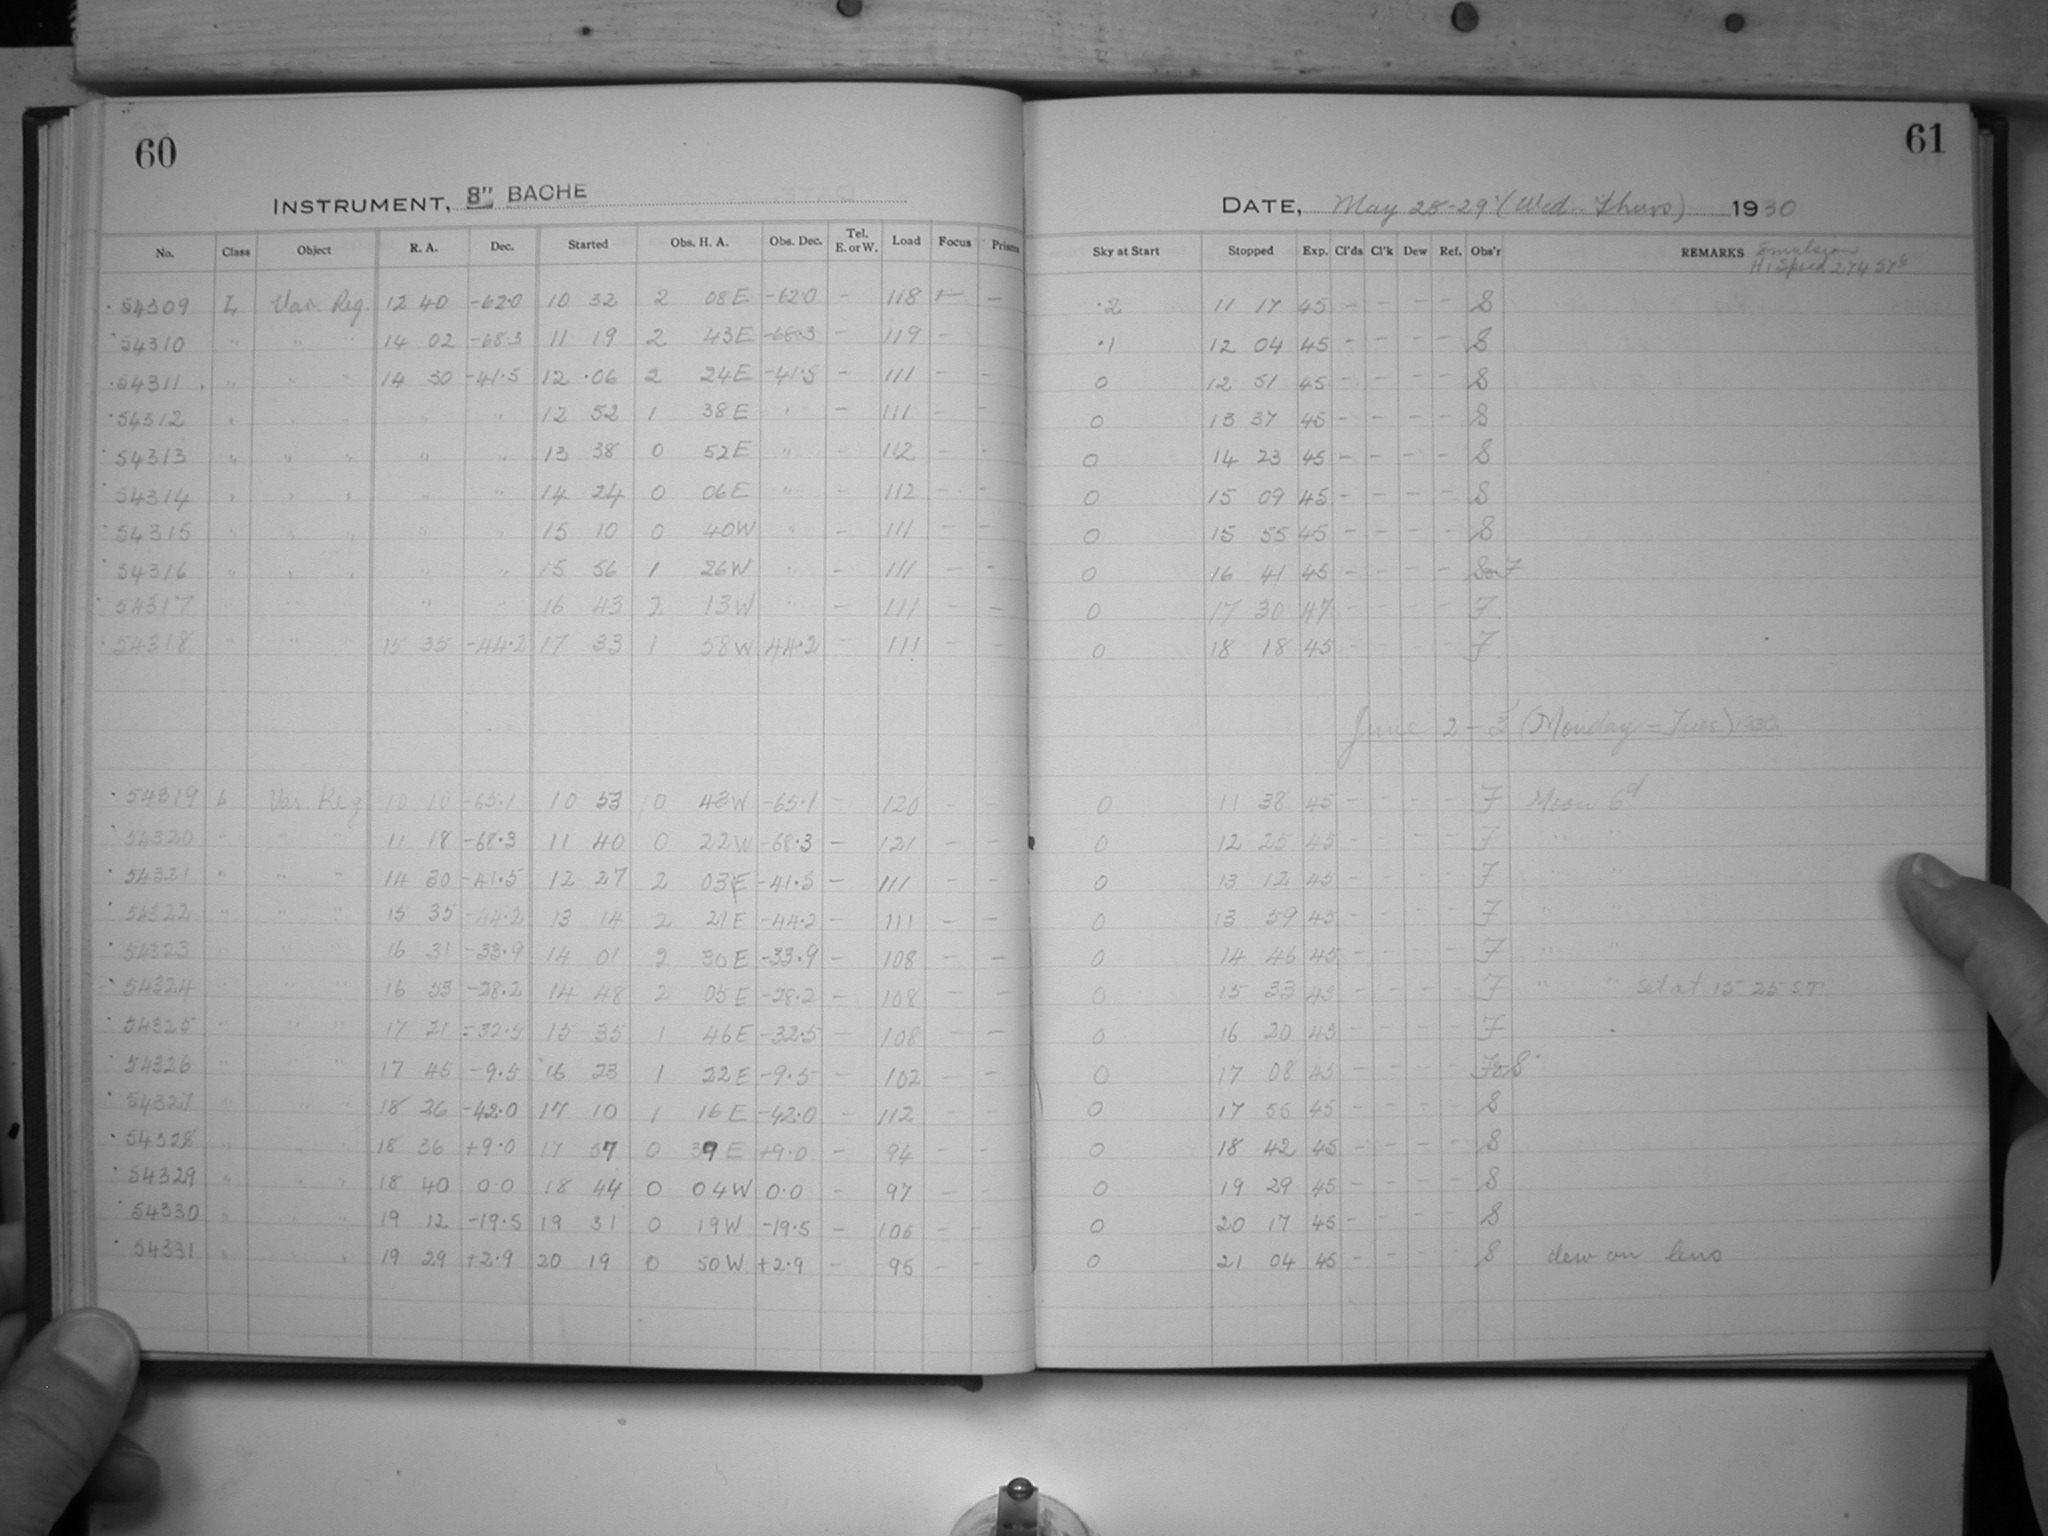 60
INSTRUMENT, 8" BACHE
No. Class Object R. A. Dec. Started Obs. H. A. Obs. Dec. Tel. E. or W. Load Focus Prisms
54309 L Var. Reg. 12 40 -62.0 10 32 2 08 E -62.0 - 118 - -
54310 " " " 14 02 -68.3 11 19 2 43 E -68.3 - 119
54311 " " " 14 30 -41.5 12 06 2 24 E -41.5 - 111 - -
54312 " " " " " 12 52 1 38 E " - 111 - -
54313 " " " " " 13 38 0 52 E " - 112 - -
54314 " " " " " 14 24 0 06 E " - 112 - -
54315 " " " " " 15 10 0 40 W " - 111 - -
54316 " " " " " 15 56 1 26 W " - 111 - -
54317 " " " " " 16 43 2 13 W " - 111 - -
54318 " " " 15 35 -44.2 17 33 1 58 W 44.2 - 111 - -
54319 L Var Reg 10 10 -65.1 10 53 0 43 W -65.1 - 120 - -
54320 " " " 11 18 -68.3 11 40 0 22 W -68.3 - 121 - -
54321 " " " 14 30 -41.5 12 27 2 03 E -41.5 - 111 - -
54322 " " " 15 35 -44.2 13 14 2 21 E -44.2 - 111 - -
54323 " " " 16 31 -33.9 14 01 2 30 E -33.9 - 108 - -
54324 " " " 16 53 -28.2 14 48 2 05 E -28.2 - 108 - -
54325 " " " 17 21 -32.5 15 35 1 46 E -32.5 - 108 - -
54326 " " " 17 45 -9.5 16 23 1 22 E -9.5 - 102 - -
54327 " " " 18 26 -42.0 17 10 1 16 E -42.0 - 112 - -
54328 " " " 18 36 +9.0 17 57 0 39 E +9.0 - 94 - -
54329 " " " 18 40 0.0 18 44 0 04 W 0.0 - 97 - -
54330 " " " 19 12 -19.5 19 31 0 19 W -19.5 - 106 - -
54331 " " " 19 29 +2.9 20 19 0 50 W +2.9 - 95 - -
61
DATE, May 28-29 (Wed-Thurs) 1930
Sky at Start Stopped Exp. Cl'ds Cl'k Dew Ref. Obs'r REMARKS Emulsion
Hi Speed 27457
.2 11 17 45 - - - - S
.1 12 04 45 - - - - S
0 12 51 45 - - - - S
0 13 37 45 - - - - S
0 14 23 45 - - - - S
0 15 09 45 - - - - S
0 15 55 45 - - - - S
0 16 41 45 - - - - S F
0 17 30 47 - - - - F
0 18 18 45 - - - - F
June 2-3 (Monday-Tues) 1930
0 11 38 45 - - - - F Moon 6d
0 12 25 45 - - - - F " "
0 13 12 45 - - - - F " "
0 13 59 45 - - - - F " "
0 14 46 45 - - - - F " "
0 15 33 45 - - - - F " " set at 15 25 S.T.
0 16 20 45 - - - - F
0 17 08 45 - - - - F S
0 17 55 45 - - - - S
0 18 42 45 - - - - S
0 19 29 45 - - - - S
0 20 17 45 - - - - S
0 21 04 45 - - - - S dew on lens